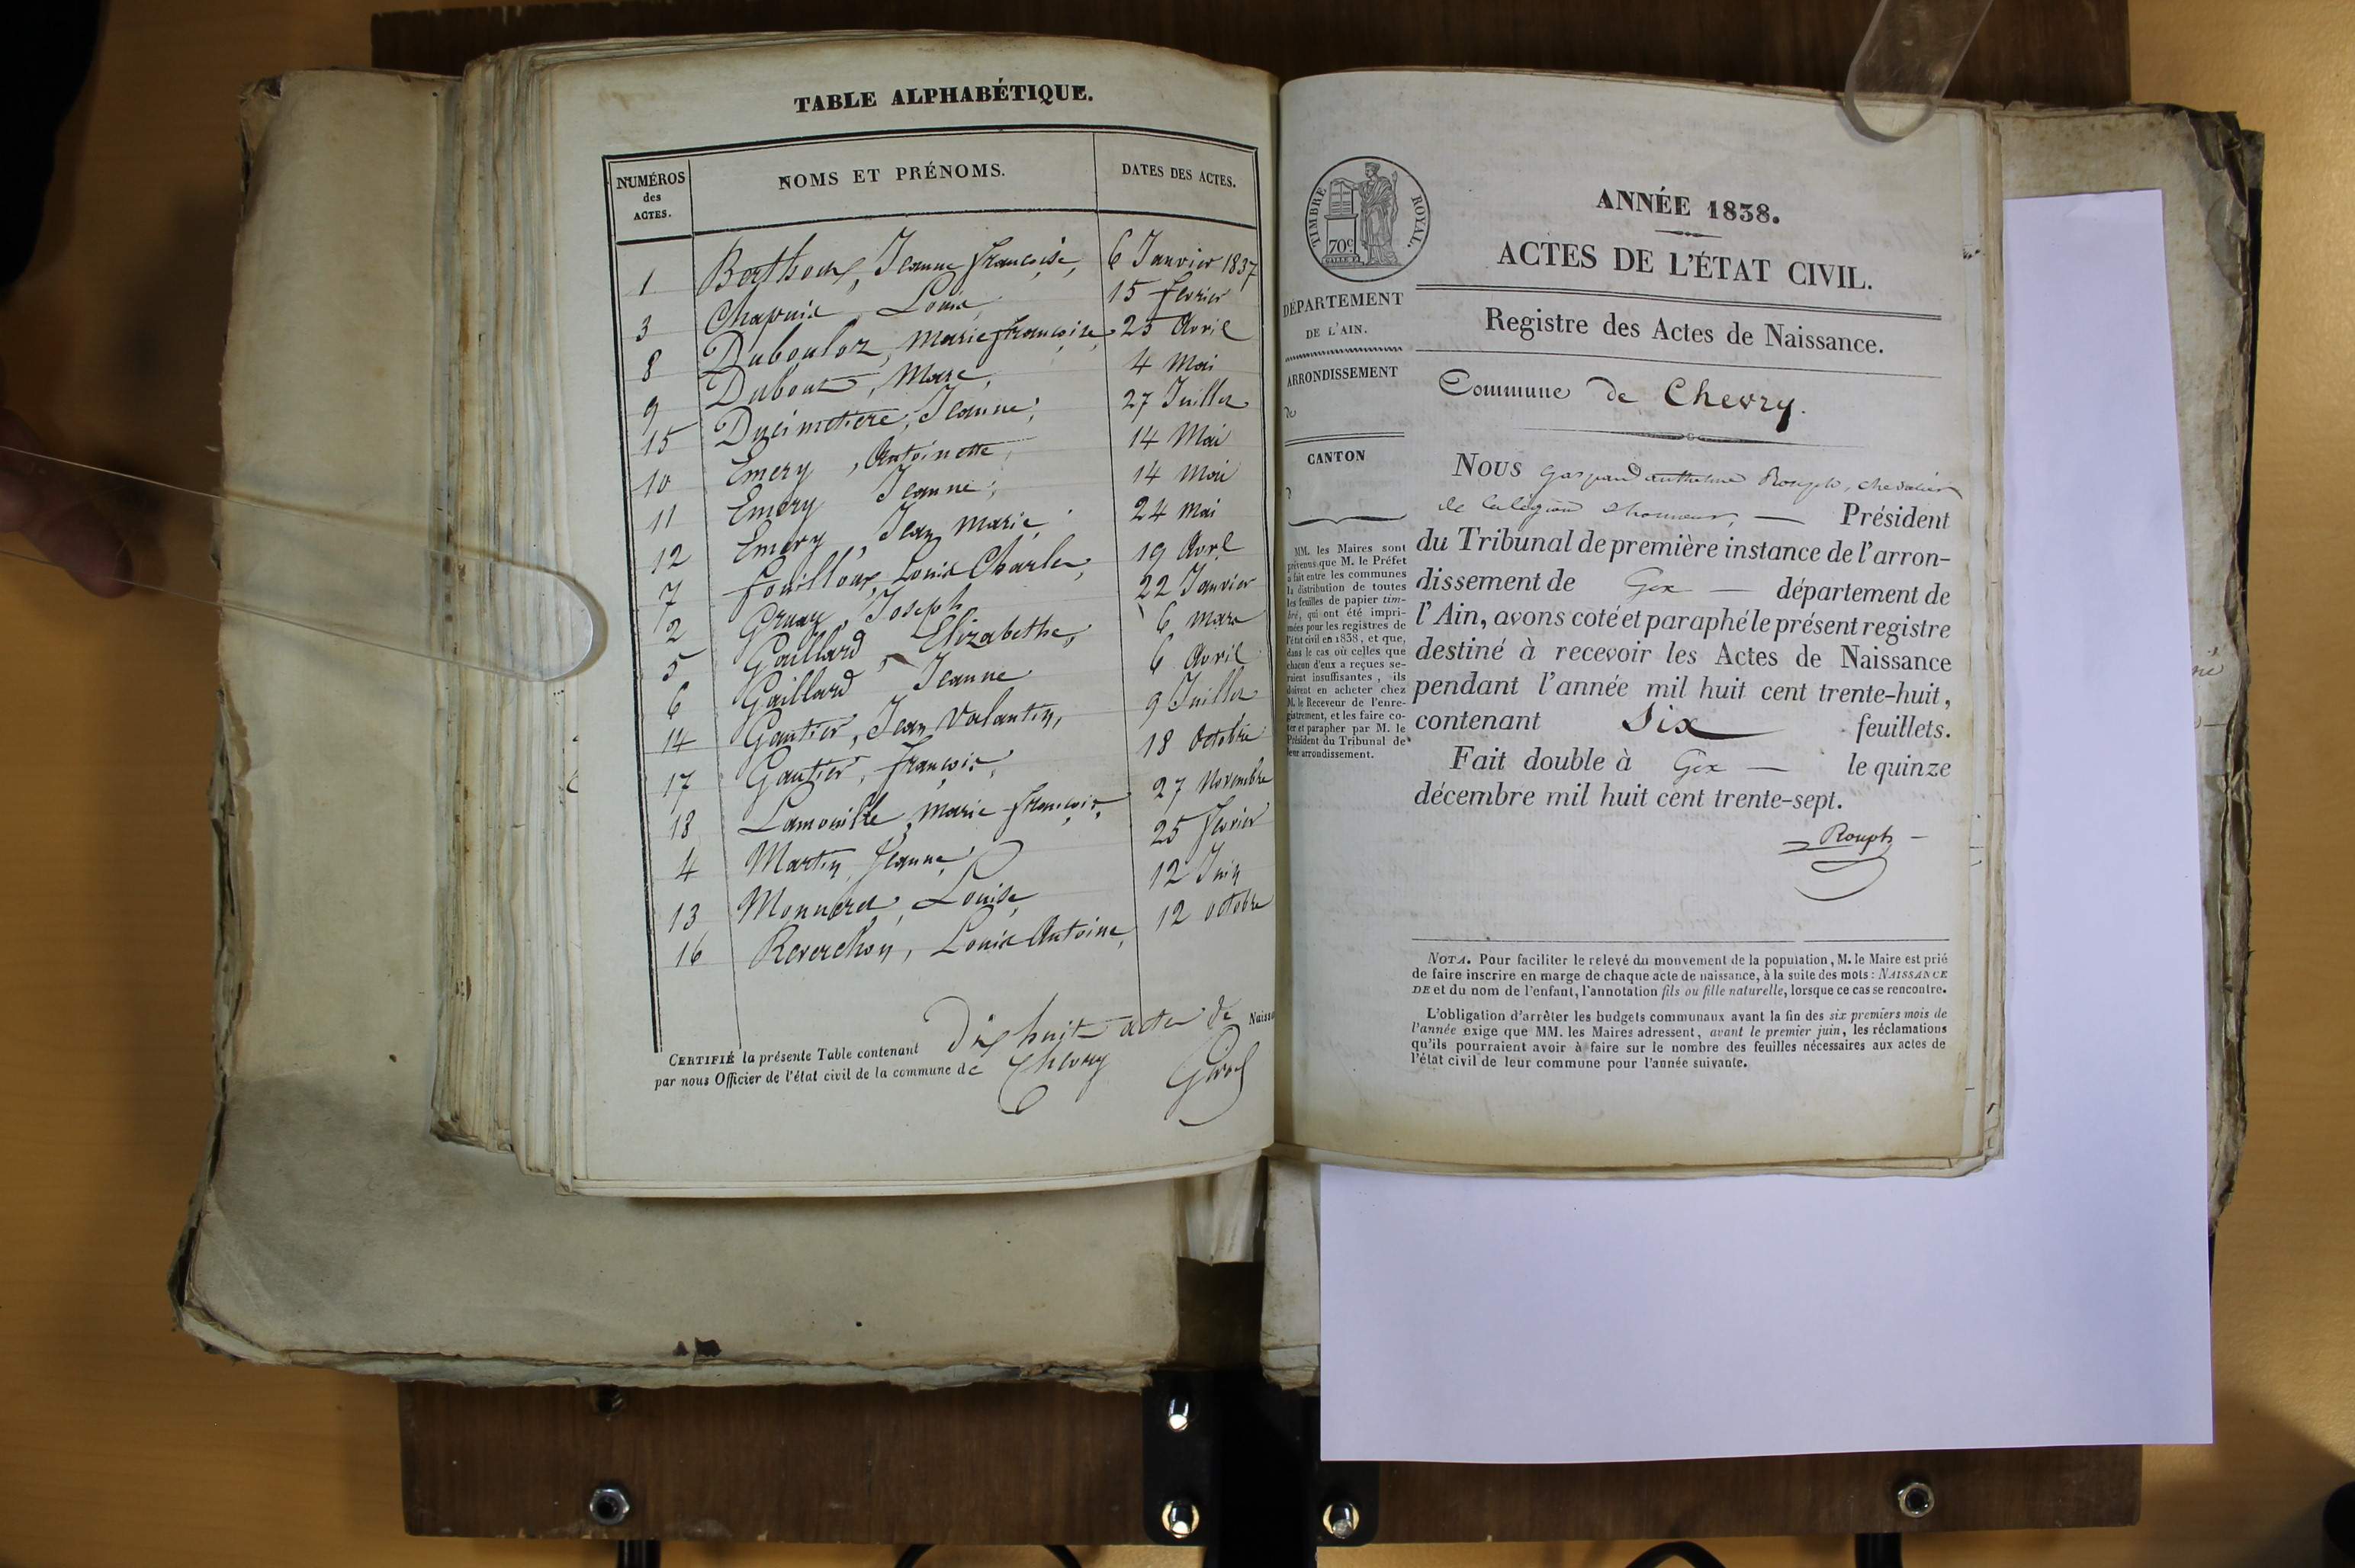 TABLE ALPHABÉTIQUE.
NUMÉROS des ACTES. NOMS ET PRÉNOMS. DATES DES ACTES.
1 Berthoux, Jeanne françoise, 6 Janvier 1837
3 Chapuis, Louis, 15 fevrier
8 Dubouloz, Marie françoise, 25 Avril
9 Dubout, Marc, 4 Mai
15 Ducimetière, Jeanne, 27 Juillet
10 Emery, Antoinette, 14 Mai
11 Emery Jeanne, 14 Mai
12 Emery, Jean Marie, 24 Mai
7 fouilloux, Louis Charles, 19 Avril
2 Gruaz, Joseph 22 Janvier
5 Gaillard, Elizabethe, 6 Mars
6 Gaillard Jeanne 6 Avril
14 Gautier, Jean Valantin, 9 Juillet
17 Gautier, françois, 18 Octobre
18 Lamouille, Marie françoise, 27 Novembre
4 Martin, Jeanne, 25 fevrier
13 Monnard, Louise, 12 Juin
16 Reverchon, Louis Antoine, 12 octobre
CERTIFIÉ la présente Table contenant Dix huit actes de Naiss
par nous Officier de l'état civil de la commune de Chevry
TIMBRE ROYAL.
70c
ANNÉE 1838.
ACTES DE L'ÉTAT CIVIL.
DÉPARTEMENT
DE L'AIN.
ARRONDISSEMENT
de
CANTON
MM. les Maires sont
prévenus que M. le Préfet
a fait entre les communes
la distribution de toutes
les feuilles de papier tim-
bré, qui ont été impri-
mées pour les registres de
l'état civil en 1838, et que,
dans le cas où celles que
chacun d'eux a reçues se-
raient insuffisantes, ils
doivent en acheter chez
M. le Receveur de l'enre-
gistrement, et les faire co-
ter et parapher par M. le
Président du Tribunal de
leur arrondissement.
Registre des Actes de Naissance.
Commune de Chevry.
NOUS Gaspard anthelme Rouph, chevalier
de la légion d'honneur, — Président
du Tribunal de première instance de l'arron-
dissement de Gex — département de
l'Ain, avons coté et paraphé le présent registre
destiné à recevoir les Actes de Naissance
pendant l'année mil huit cent trente-huit,
contenant Six feuillets.
Fait double à Gex — le quinze
décembre mil huit cent trente-sept.
Rouph
NOTA. Pour faciliter le relevé du mouvement de la population, M. le Maire est prié
de faire inscrire en marge de chaque acte de naissance, à la suite des mots : NAISSANCE
DE et du nom de l'enfant, l'annotation fils ou fille naturelle, lorsque ce cas se rencontre.
L'obligation d'arrêter les budgets communaux avant la fin des six premiers mois de
l'année exige que MM. les Maires adressent, avant le premier juin, les réclamations
qu'ils pourraient avoir à faire sur le nombre des feuilles nécessaires aux actes de
l'état civil de leur commune pour l'année suivante.